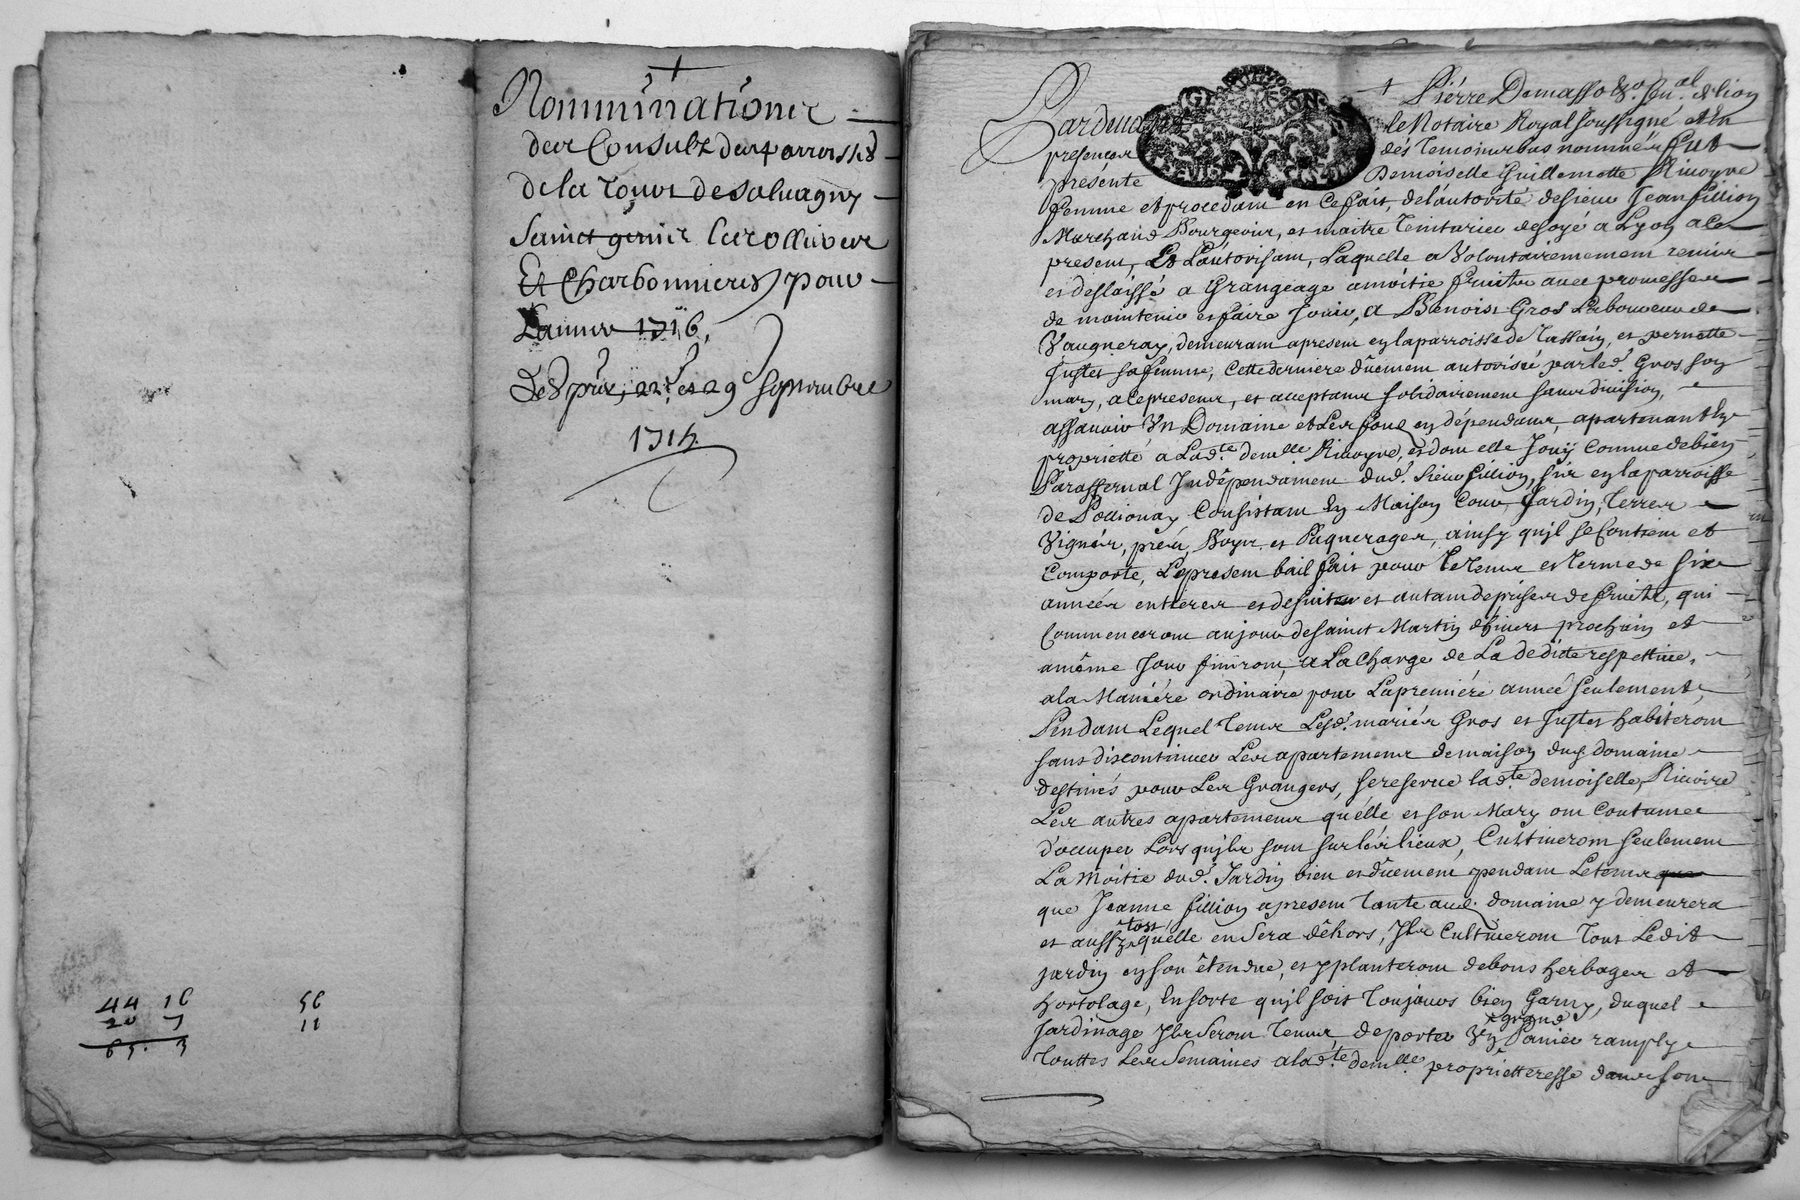 Nomminationes
des Consulz des parroisses
de la Tour de Salvagny
Sainct genis les ollieres
Et Charbonnieres pour
L'annee 1716,
Des pre., 22. et 29 Septembre
1715.
44 16
20 7
65. 3
56
11
Pardevant Pierre Demasso
le Notaire Royal soussigné et en
presences des temoins bas nommés fut
présente Demoiselle Guillemette Rivoyre
femme et procedant en ce fait, de l'autorité de sieur Jean fillion
Marchand Bourgeois, et maitre Teinturier de soye a Lyon a ce
present, Et L'autorisant, Laquelle a Volontairement remis
et deslaissé a Grangeage a moitié fruits avec promesse
de maintenir et faire Jouir, a Benoist Gros Laboureur de
Vaugneray, demeurant apresent en la parroisse de Tassain, et pernette
Juttet sa femme, cette derniere düement autorisée par led. Gros son
mary, a ce presens, et acceptans solidairement sans division,
assavoir Un Domaine et Les fonds en dépendans, apartenant en
proprietté a Lad.te dem.elle Rivoyre, et dont elle Jouÿ comme de bien
Paraffernal Indépendament dud. sieur fillion, sis en la parroisse
de Pollionay Consistant En Maison Cour, Jardin, Terres
Vignes, prés, Boys et Paquerages, ainsy qu'jl se Contient et
Comporte, Le present bail fait pour Le Tems et terme de six
années entieres et de suitte et autant de prises de fruits, qui
Commenceront au jour de Sainct Martin d'hivert prochain et
a même Jour finiront, a La charge de La deditte respettive,
a la Maniére ordinaire pour La premiére année seulement,
Pendant Lequel tems Lesd. mariés Gros et Juttet habiteront
sans discontinuer Les apartemens de maison dud. domaine
destinés pour Les Grangers, se reserve lad.te demoiselle, Rivoire
Les autres apartemens qu'elle et son Mary ont Coutume
d'occuper Lors qu'jls sont sur les lieux, Cultiveront seulement
La Moitié dud. Jardin bien et düement pendant Le tems
que Jeanne fillion apresent tante aud. domaine y demeurera
et aussy tost qu'elle en sera dêhors, Jls Cultiveront Tout Ledit
jardin en son étendue, et y planteront de bons herbages et
hortolage, En sorte qu'jl soit Toujours bien Garny, duquel
Jardinage Jls seront Tenus de porter Un grand Panier remply
Touttes Les Semaines a lad.te dem.elle proprietteresse dans son